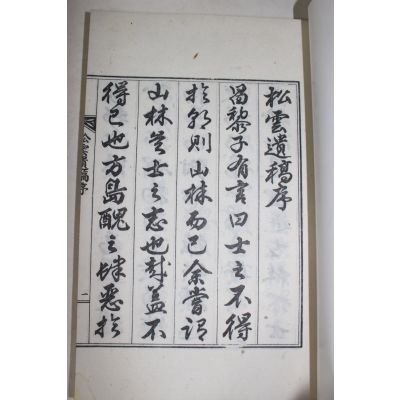 松雲遺稿序
昌黎子有言曰士之不得
於朝則山林而已余嘗謂
山林豈士之志也哉蓋不
得已也方島醜之肆惡於
松雲遺稿序
一